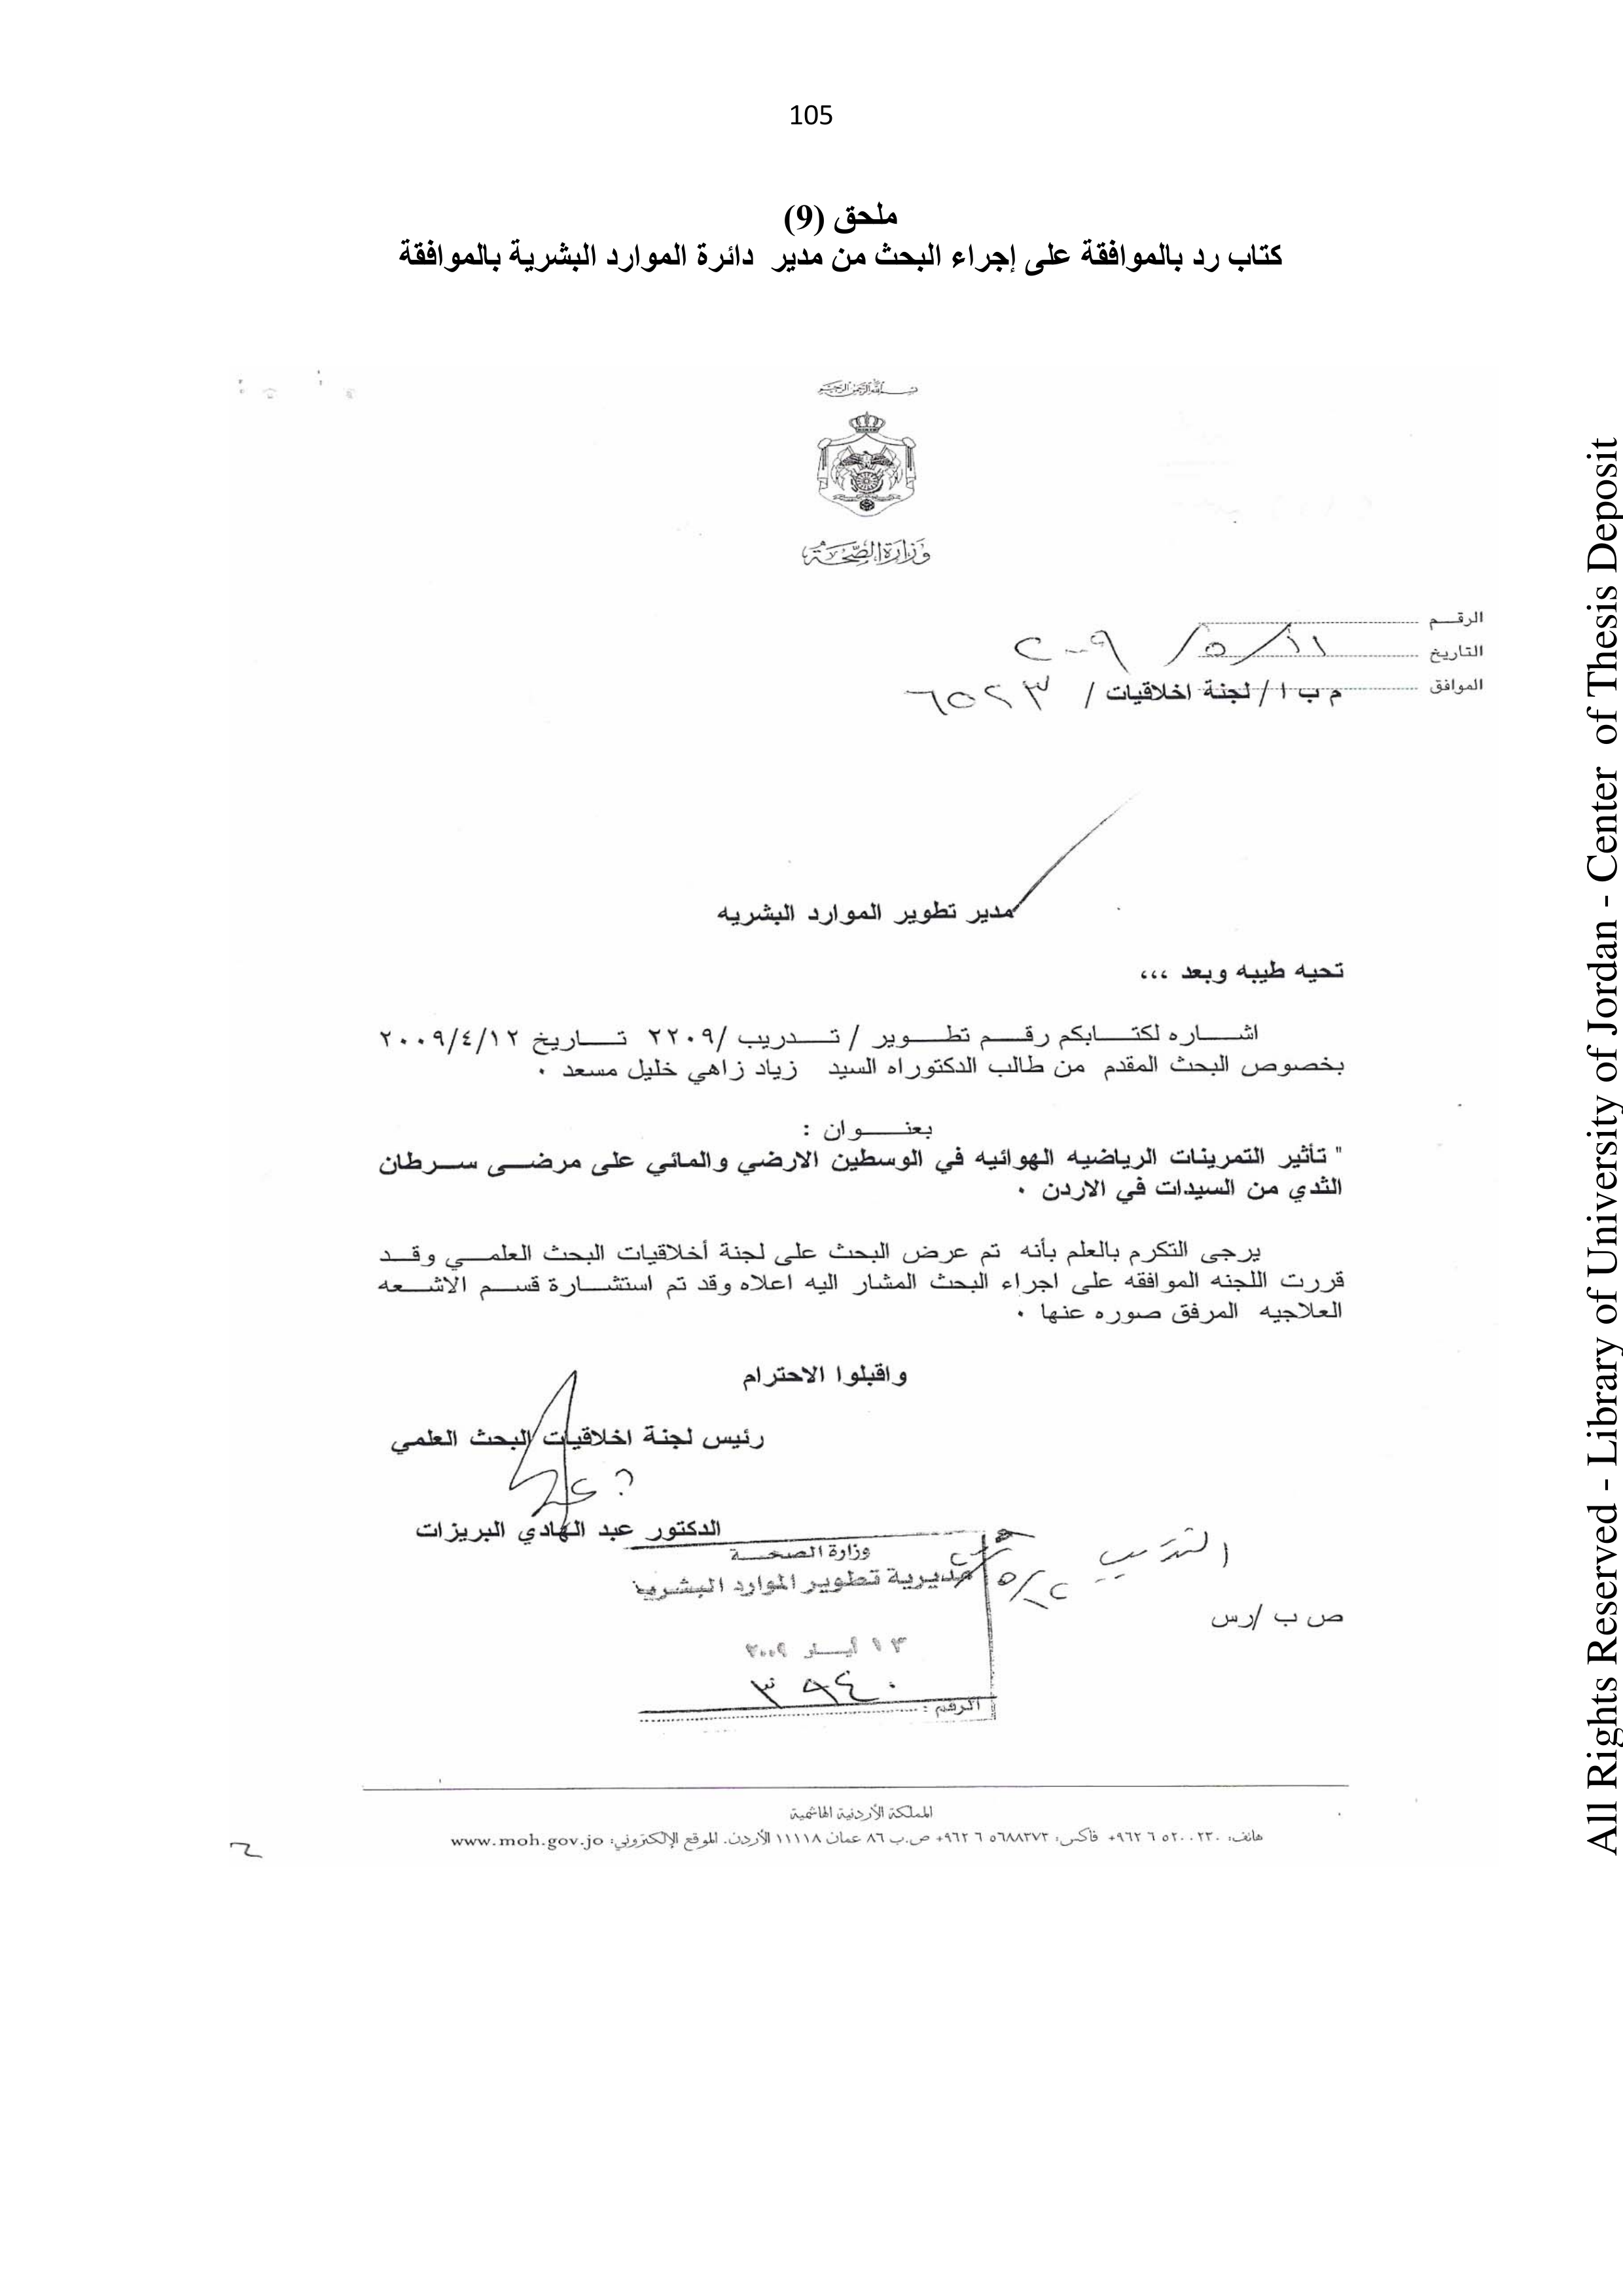 105
ملحق (9)
كتاب رد بالموافقة على إجراء البحث من مدير دائرة الموارد البشرية بالموافقة
بسم الله الرحمن الرحيم
وزارة الصحة
الرقـــم
التاريخ ١١/٥/٢٠٠٩
الموافق م ب ا / لجنة اخلاقيات / ٦٥٢٣
مدير تطوير الموارد البشريه
تحيه طيبه وبعد ،،،
اشـــاره لكتـــابكم رقـــم تطـــوير / تـــدريب /٢٢٠٩ تـــاريخ ٢٠٠٩/٤/١٢
بخصوص البحث المقدم من طالب الدكتوراه السيد زياد زاهي خليل مسعد ٠
بعنـــــوان :
" تأثير التمرينات الرياضيه الهوائيه في الوسطين الارضي والمائي على مرضـــى ســـرطان
الثدي من السيدات في الاردن ٠
يرجى التكرم بالعلم بأنه تم عرض البحث على لجنة أخلاقيات البحث العلمـــي وقـــد
قررت اللجنه الموافقه على اجراء البحث المشار اليه اعلاه وقد تم استشـــارة قســـم الاشـــعه
العلاجيه المرفق صوره عنها ٠
واقبلوا الاحترام
رئيس لجنة اخلاقيات البحث العلمي
الدكتور عبد الهادي البريزات
التدريب
وزارة الصحـــة
مديرية تطوير الموارد البشرية
ص ب /رس
١٣ أيـــار ٢٠٠٩
الرقم : ٣٩٤٠
المملكة الأردنية الهاشمية
هاتف: ٥٢٠٠٢٣٠ ٦ ٩٦٢+ فاكس: ٥٦٨٨٣٧٣ ٦ ٩٦٢+ ص.ب ٨٦ عمان ١١١١٨ الأردن. الموقع الإلكتروني: www.moh.gov.jo
All Rights Reserved - Library of University of Jordan - Center of Thesis Deposit